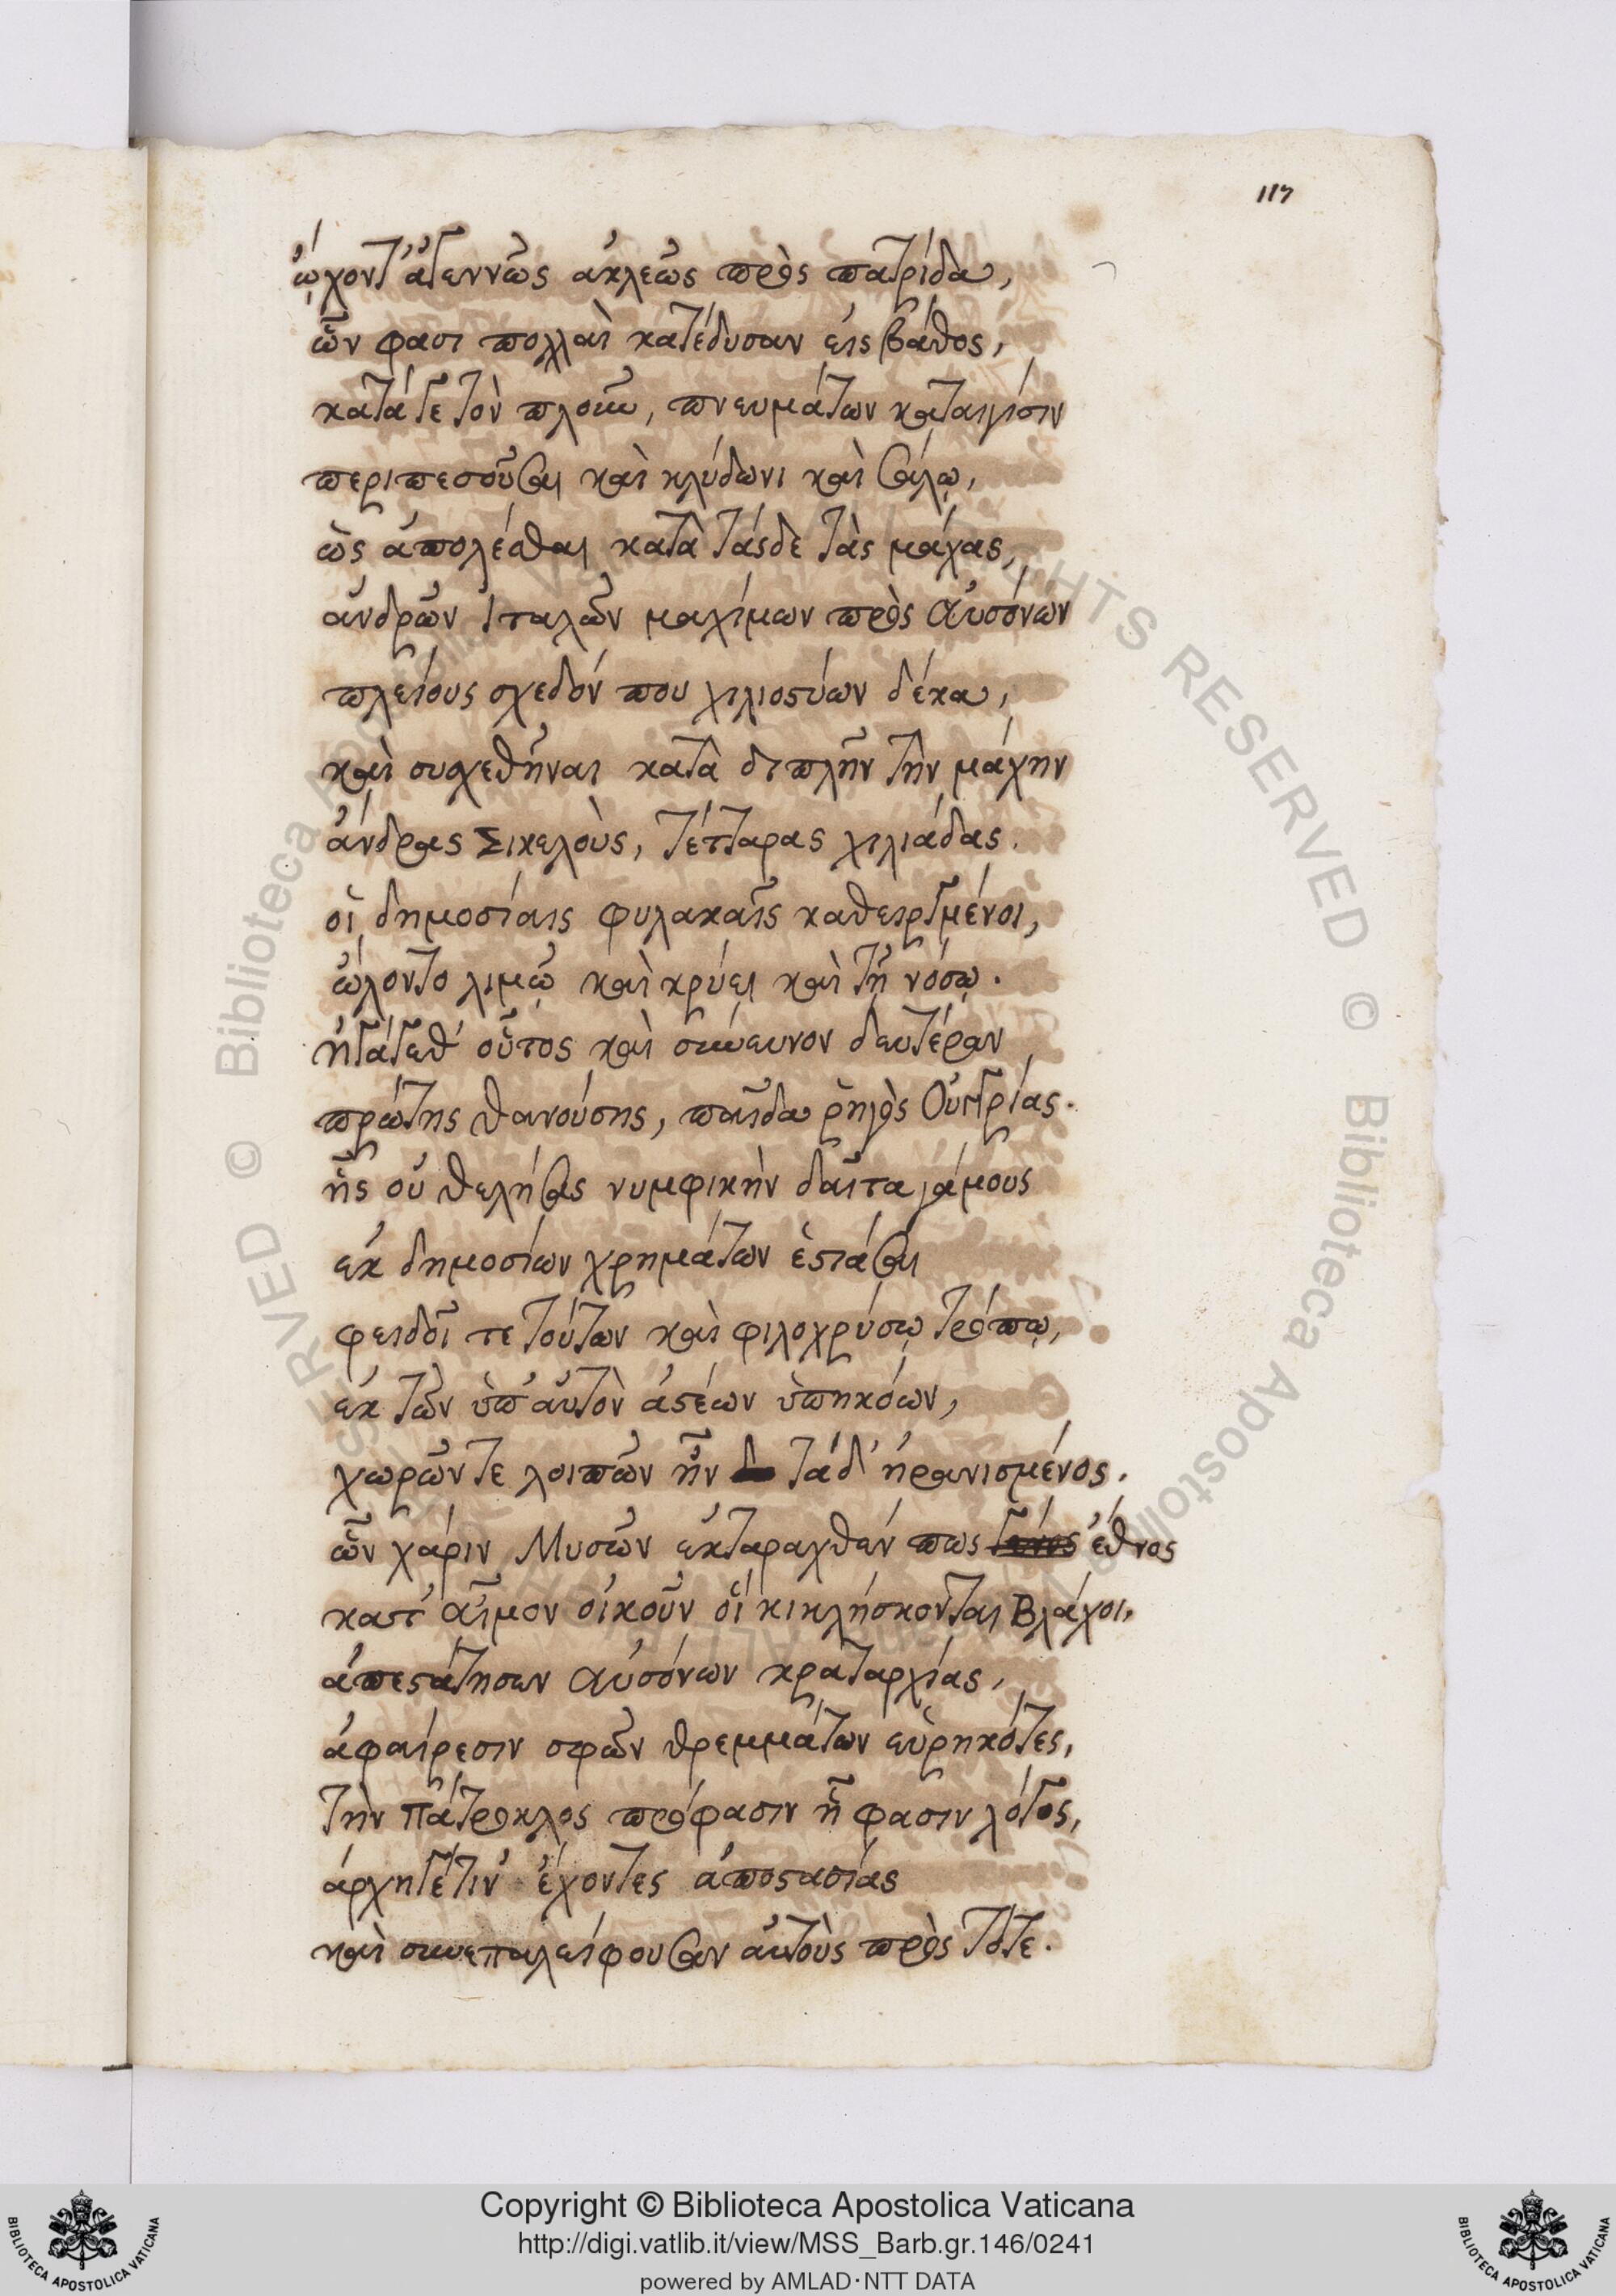 117
ᾤχοντ' ἀγεννῶς ἀκλεῶς πρὸς πατρίδα,
ὧν φασι πολλαὶ κατέδυσαν εἰς βάθος,
κατά γε τὸν πλοῦν, πνευμάτων καταιγίσιν
περιπεσοῦσαι καὶ κλύδωνι καὶ σάλῳ,
ὡς ἀπολέσθαι κατὰ τάσδε τὰς μάχας,
ἀνδρῶν Ἰταλῶν μαχίμων πρὸς Αὐσόνων
πλείους σχεδόν που χιλιοστύων δέκα,
καὶ συσχεθῆναι κατὰ διπλῆν τὴν μάχην
ἄνδρας Σικελοὺς, τέτταρας χιλιάδας.
οἳ δημοσίαις φυλακαῖς καθειργμένοι,
ὤλοντο λιμῷ καὶ κρύει καὶ τῇ νόσῳ.
ἠγάγεθ' οὗτος καὶ σύνευνον δευτέραν
πρώτης θανούσης, παῖδα ῥηγὸς Οὐγγρίας.
ἧς οὐ θελήσας νυμφικὴν δαῖτα γάμους
ἐκ δημοσίων χρημάτων ἑστιᾶσαι
φειδοῖ τε τούτων καὶ φιλοχρύσῳ τρόπῳ,
ἐκ τῶν ὑπ' αὐτὸν ἀστέων ὑπηκόων,
χωρῶν τε λοιπῶν ἦν τάδ' ἠρανισμένος.
ὧν χάριν Μυσῶν ἐκταραχθέν πως ἔθνος
κατ' Αἷμον οἰκοῦν οἳ κικλήσκονται Βλάχοι,
ἀπεστάτησεν Αὐσόνων κραταρχίας,
ἀφαίρεσιν σφῶν θρεμμάτων εὑρηκότες,
τὴν Πάτροκλος πρόφασιν ᾗ φασιν λόγος,
ἀρχηγέτιν ἔχοντες ἀποστασίας
καὶ συνεπαλείφουσαν αὐτοὺς πρὸς τότε.
Copyright © Biblioteca Apostolica Vaticana
http://digi.vatlib.it/view/MSS_Barb.gr.146/0241
powered by AMLAD·NTT DATA